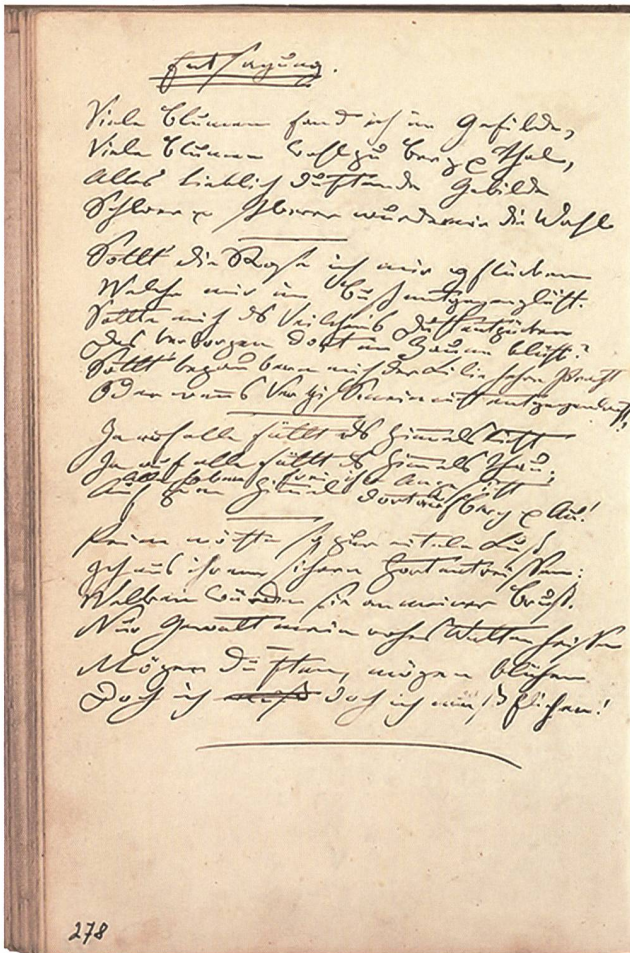 Entsagung.
Viele Blumen fand ich im Gefilde,
Viele Blumen wohl zu Berg & Thal,
Alles lieblich duftende Gebilde
Schwer & schwerer wurde mir die Wahl
Sollt' die Rose ich mir pflücken
Welche mir im Busch entgegenglüht.
Sollte mich des Veilchens Duft entzücken
Das verborgen dort am Zaune blüht?
Sollt' bezaubern mich der Lilie hohe Pracht
Oder wenns Vergißmeinnicht entgegenlacht?
Ja auf alle fällt des Himmels Licht
Ja auf alle fällt des Himmels Thau;
Alle
Auf zum Himmel dort auf Berg & Au!
Keine möchte ich zur eiteln Lust
ihrem sichern Hort entreissen;
Welken würden sie an meiner Brust.
Nur Gewalt mein rohes Walten heissen
Mögen duften, mögen blühen
Doch ich doch ich muß fliehen!
278